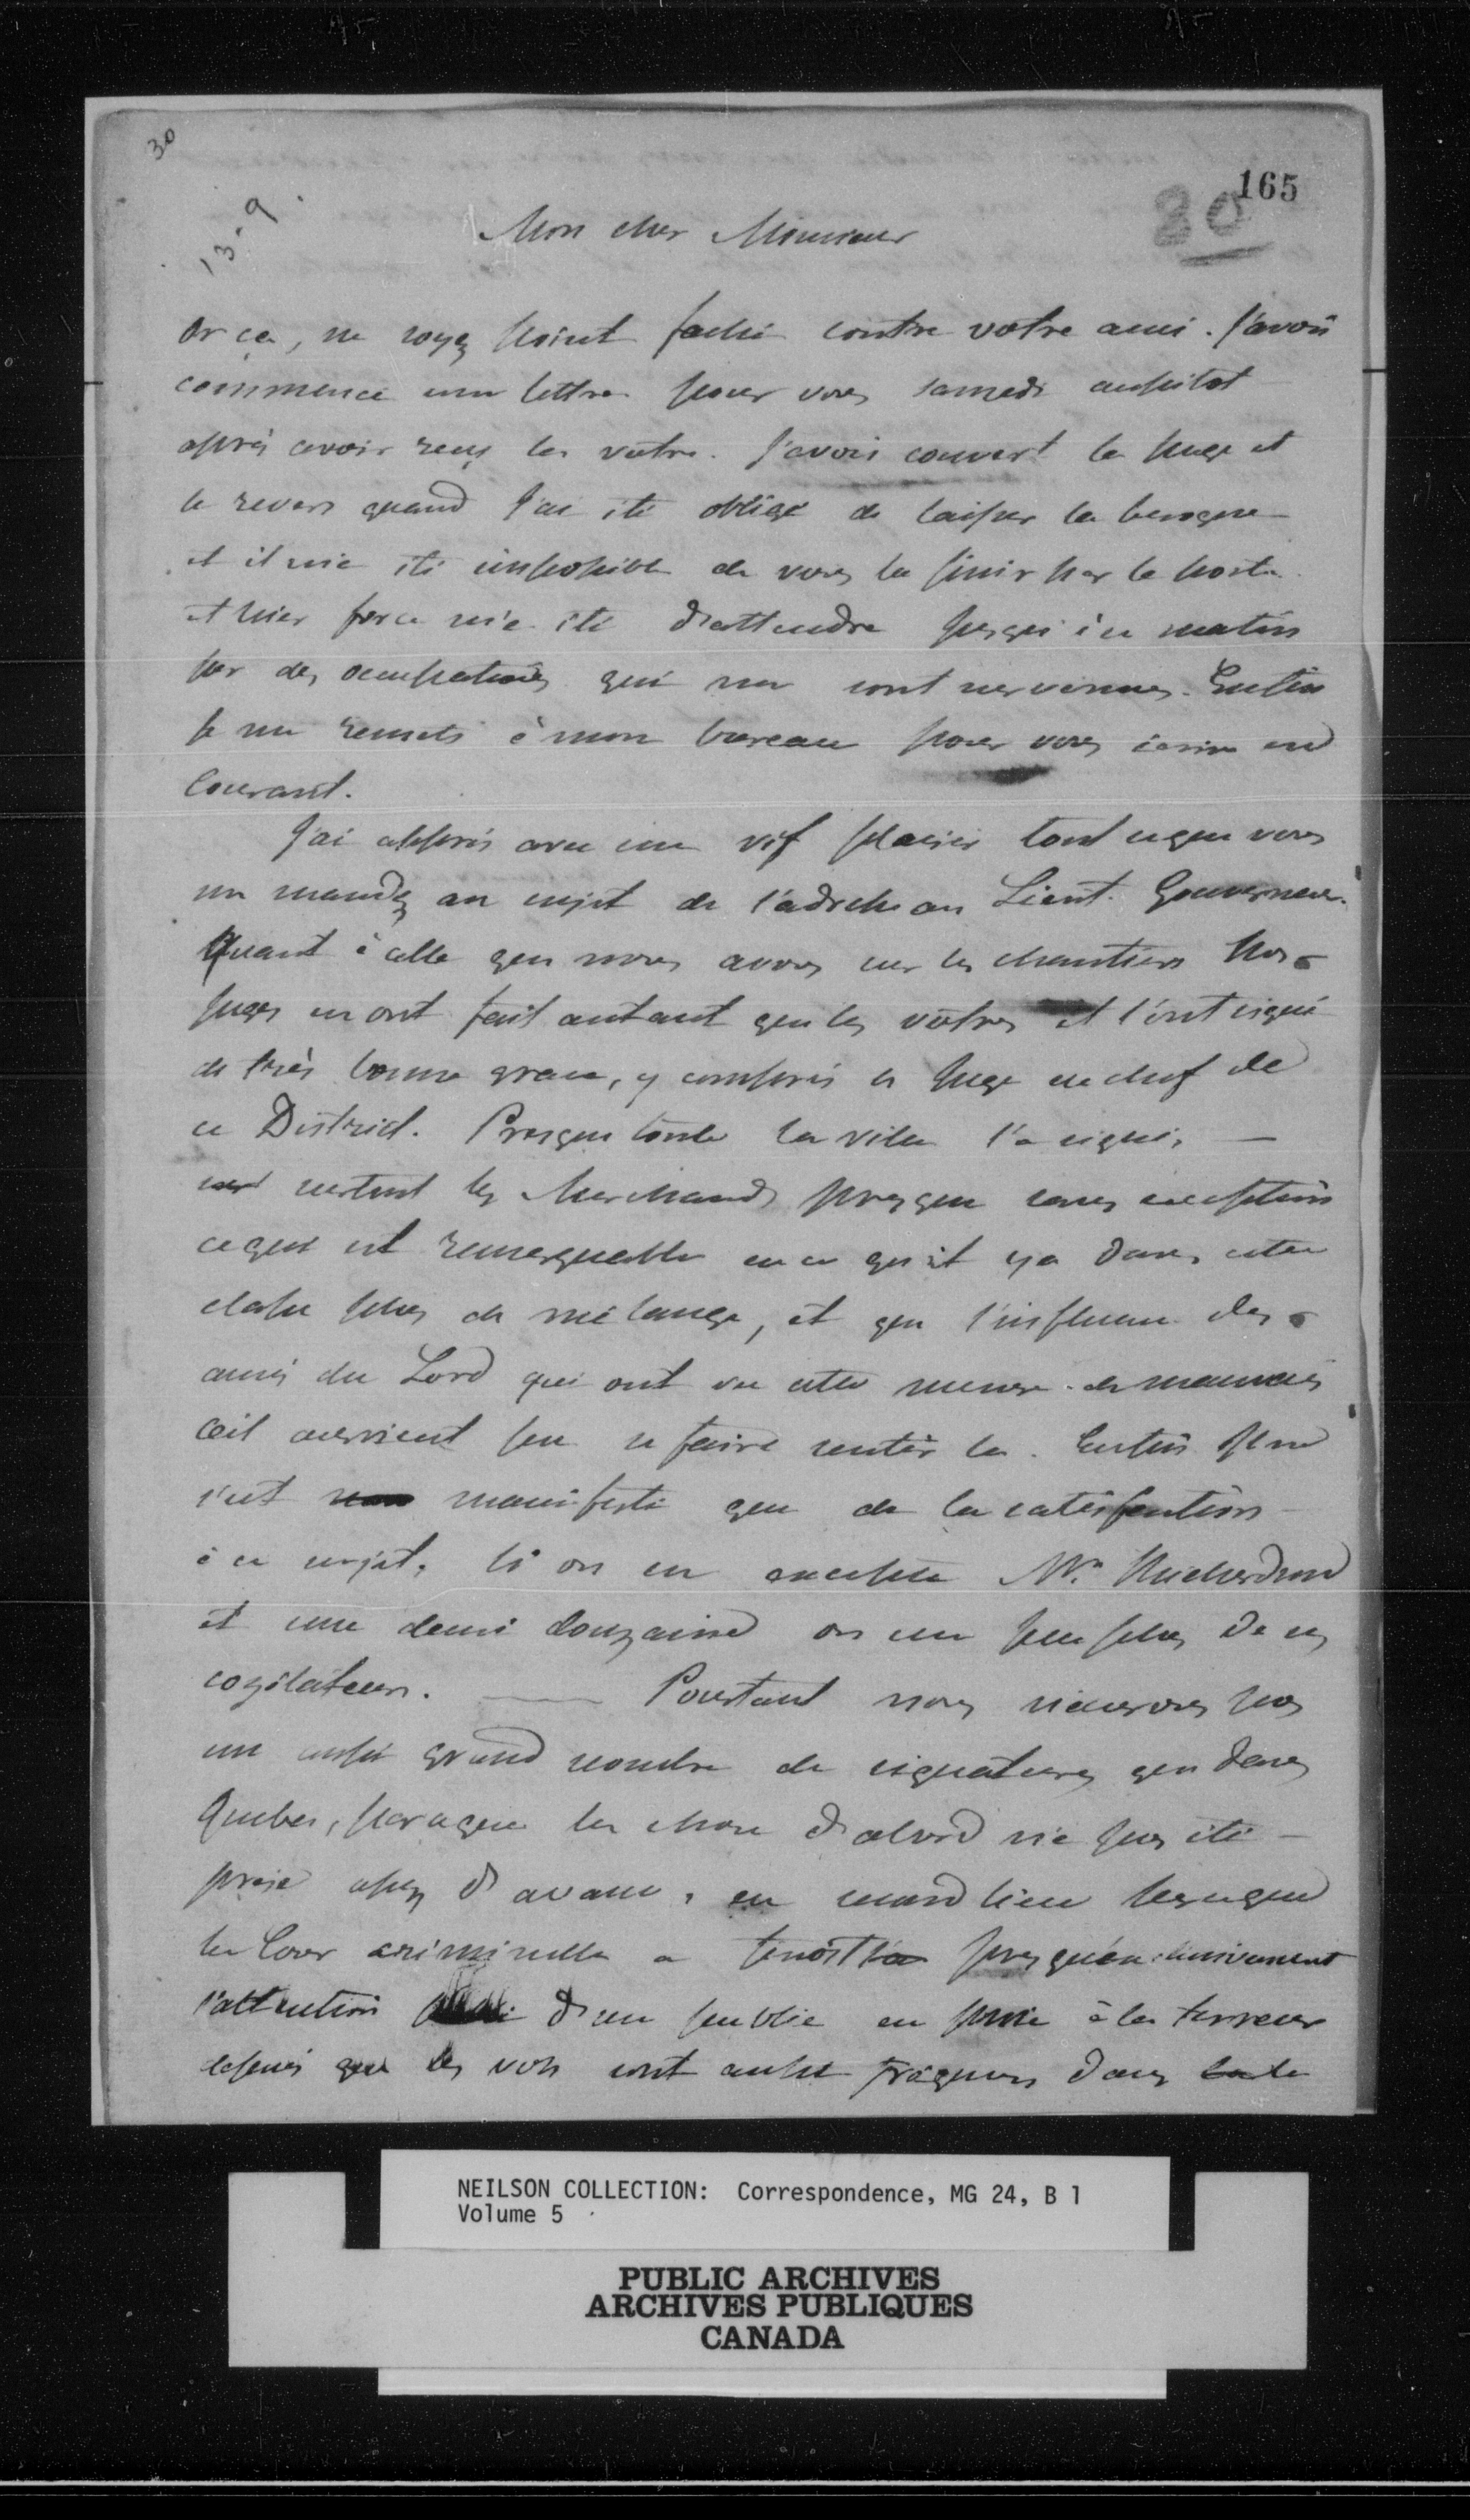 30
165
20
13-9
Mon cher Monsieur
Or ça, ne soyez point faché contre votre ami. J'avois
commencé une lettre pour vous samedi aussitot
après avoir reçu la votre. J'avois couvert la page et
le revers quand j'ai été obligé de laisser la besogne
et il m'a été impossible de vous la finir par la poste
et hier force m'a été d'attendre jusqu'à ce matin
par des occupations qui me sont survenues. Enfin
je me remets à mon bureau pour vous écrire en
Courant.
J'ai appris avec un vif plaisir tout ce que vous
me mandez au sujet de l'adresse au Lieut. Gouverneur.
Quant à celle que nous avons sur les chantiers Nos
Juges en ont fait autant que les vôtres et l'ont signé
de très bonne grace, y compris le Juge en chef de
ce District. Presque toute la ville l'a signé, —
surtout les Marchands presque sans exception
ce qui est remarquable en ce qu'il y a dans cette
classe plus de mélange, et que l'influence des
amis du Lord qui ont vu cette mesure de mauvais
œil auroient pu se faire sentir là. Enfin il ne
s'est manifesté que de la satisfaction
à ce sujet, si on en excepte Mr. Richardson
et une demi douzaine ou un peu plus de ses
co Pourtant nous n'aurons pas
un aussi grand nombre de signatures que dans
Quebec, parceque la chose d'abord n'a pas été —
prise assez d'avance, en second lieu parceque
la Cour criminelle a presqu'exclusivement
l'attention d'un public en proie à la terreur
depuis que les vols sont aussi fréquens dans la
NEILSON COLLECTION: Correspondence, MG 24, B 1
Volume 5
PUBLIC ARCHIVES
ARCHIVES PUBLIQUES
CANADA